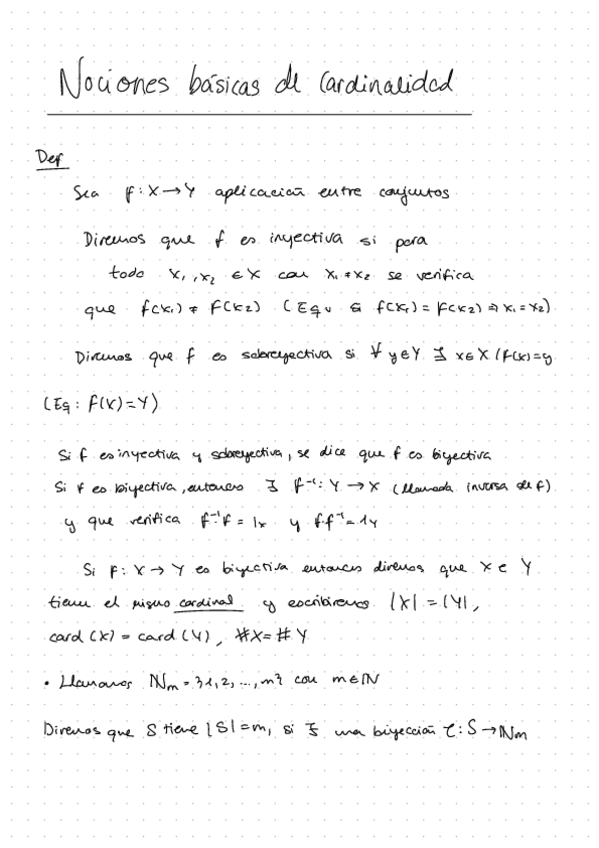 Nociones básicas de Cardinalidad
Def
Sea f: X → Y aplicación entre conjuntos
Diremos que f es inyectiva si para
todo x₁, x₂ ∈ X con x₁ ≠ x₂ se verifica
que f(x₁) ≠ f(x₂) (Equ si f(x₁) = f(x₂) ⇒ x₁ = x₂)
Diremos que f es sobreyectiva si ∀ y∈Y ∃ x∈X / f(x)=y
(Eq: f(X)=Y)
Si f es inyectiva y sobreyectiva, se dice que f es biyectiva
Si f es biyectiva, entonces ∃ f⁻¹: Y → X (llamada inversa de f)
y que verifica f⁻¹·f = 1x y f·f⁻¹ = 1y
Si f: X → Y es biyectiva entonces diremos que X e Y
tienen el mismo cardinal y escribiremos |X| = |Y|,
card (X) = card (Y), #X = #Y
• Llamamos ℕm = {1, 2, ..., m} con m∈ℕ
Diremos que S tiene |S| = m, si ∃ una biyección τ: S → ℕm